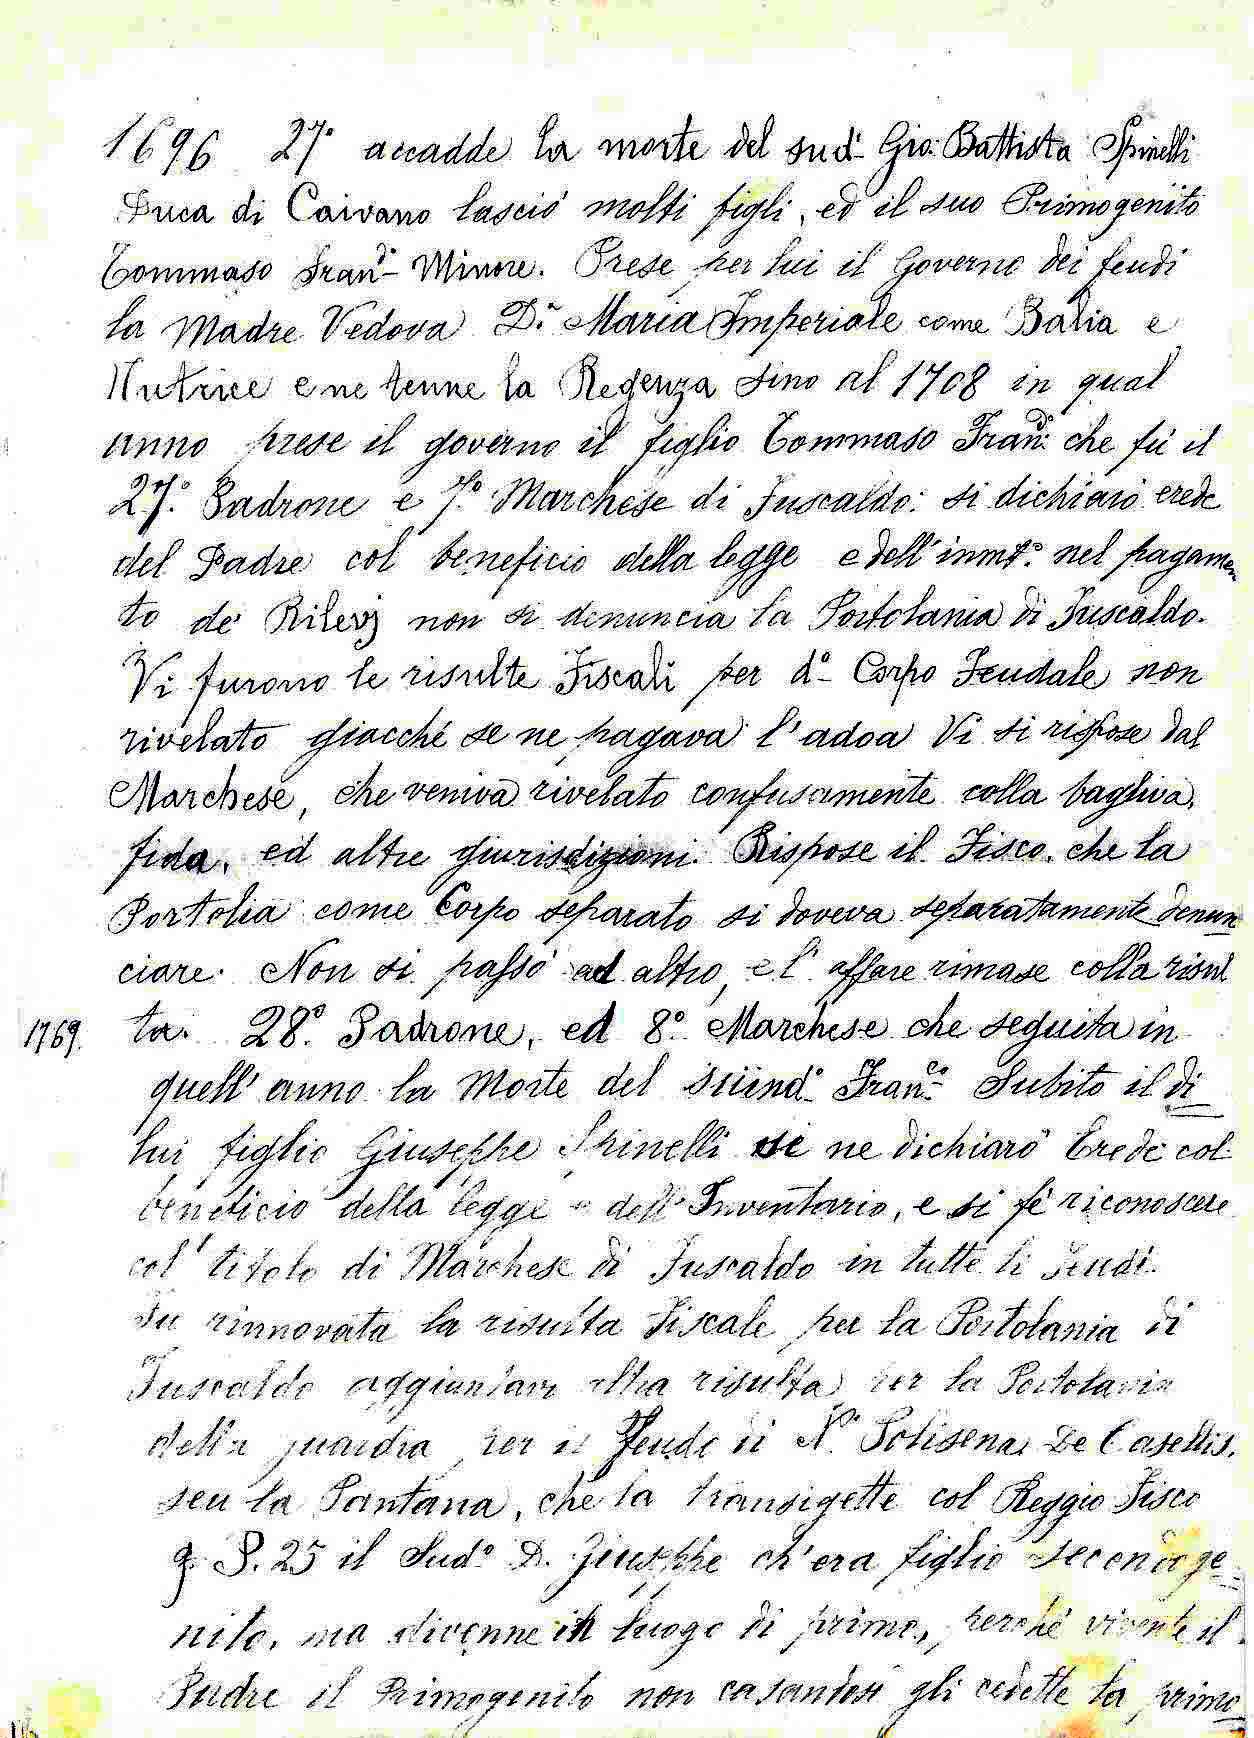 1696 27° accadde la morte del sud.° Gio: Battista Spinelli
Duca di Caivano lasciò molti figli, ed il suo Primogenito
Tommaso Fran.° Minore. Prese per lui il Governo dei feudi
la Madre Vedova D.ª Maria Imperiale come Balia e
Nutrice e ne tenne la Regenza sino al 1708 in qual
anno prese il governo il figlio Tommaso Fran.° che fù il
27.° Padrone e 7.° Marchese di Fuscaldo: si dichiarò erede
del Padre col beneficio della legge e dell'inmt.° nel pagamen
to de' Rilevj non si denuncia la Portolania di Fuscaldo.
Vi furono le risulte Fiscali per d.° Corpo Feudale non
rivelato giacché se ne pagava l'adoa Vi si rispose dal
Marchese, che veniva rivelato confusamente colla bagliva,
fida, ed altre giurisdizioni. Rispose il Fisco, che la
Portolia come Corpo separato si doveva separatamente denun
ciare. Non si passò ad altro, e l'affare rimase colla risul
1769. ta. 28.° Padrone, ed 8.° Marchese che seguita in
quell'anno la Morte del Fran.co Subito il di
lui figlio Giuseppe Spinelli se ne dichiarò Erede col
beneficio della legge e dell'Inventario, e si fè riconoscere
col titolo di Marchese di Fuscaldo in tutte li Feudi.
Fu rinnovata la risulta Fiscale per la Portolania di
Fuscaldo altra risulta per la Portolania
della guardia per il Feudo di N.ª Polisena De Casellis,
seu la Pantana, che la transigette col Reggio Fisco
P. 25 il Sud.° D. Giuseppe ch'era figlio secondoge
nito, ma divenne in luogo di primo, perché vivente il
Padre il Primogenito non casandosi gli cedette la primo